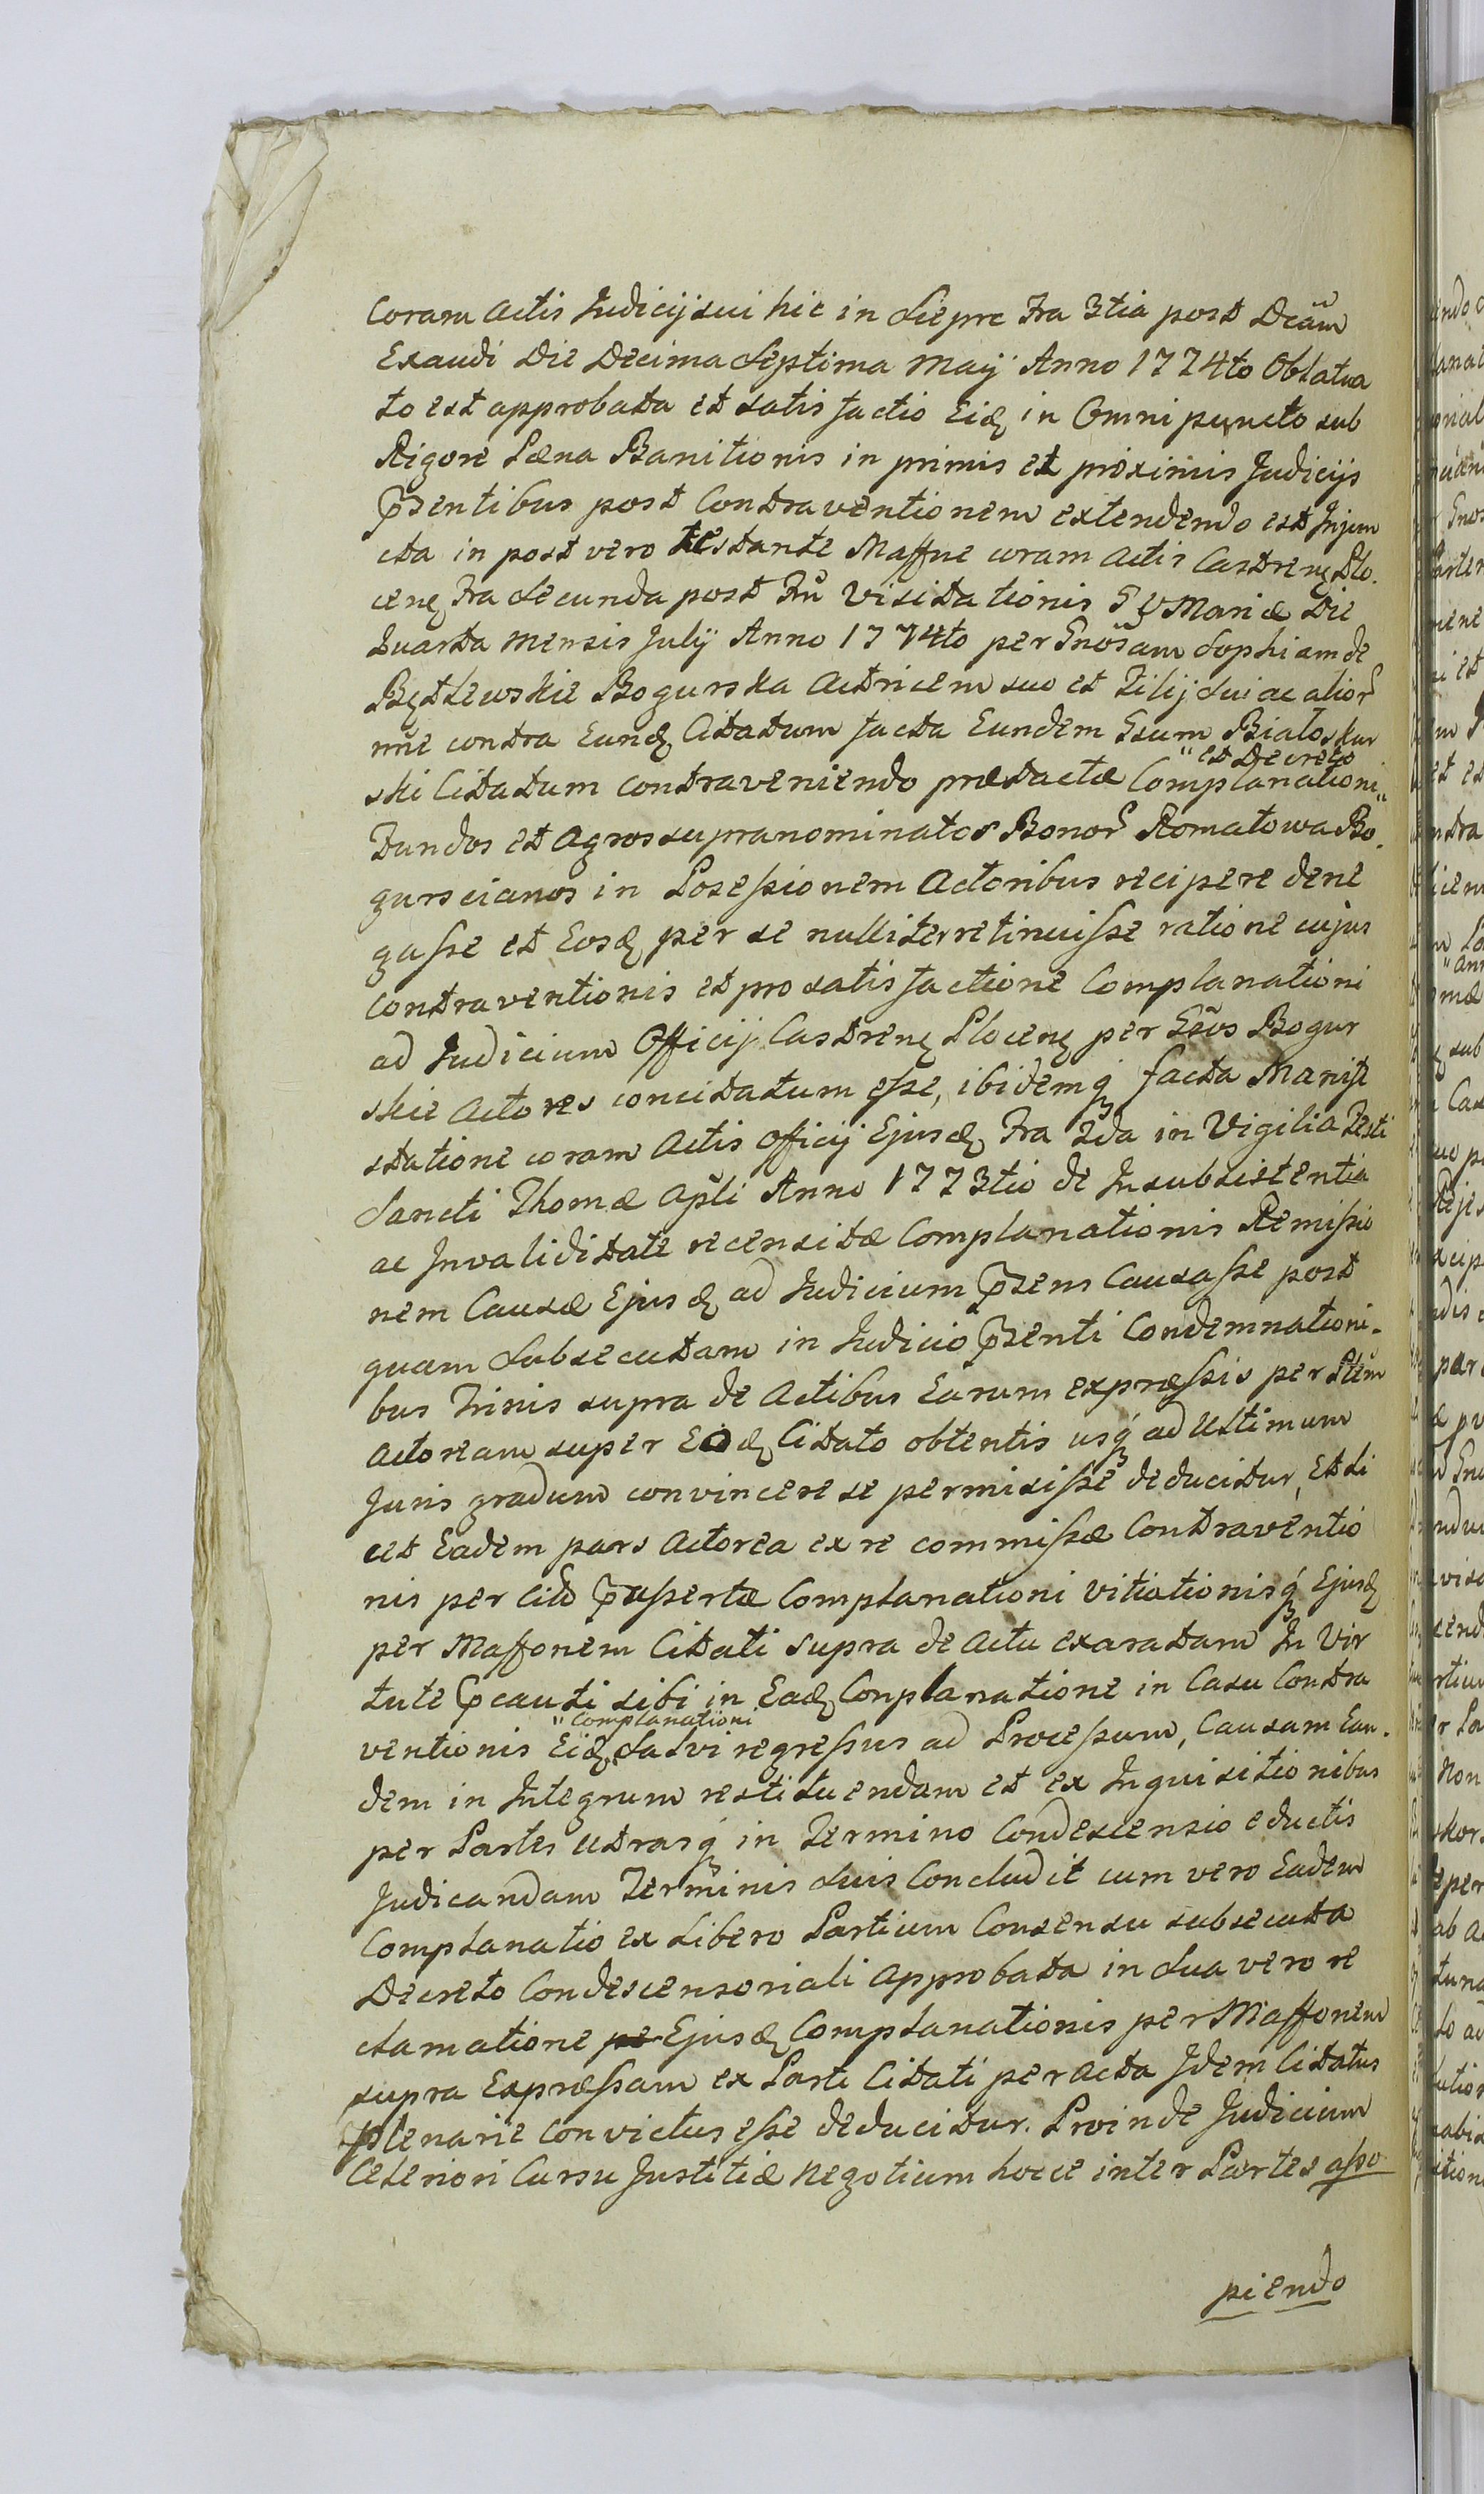 Coram Actis Judicij sui hic in Siepre Fra 3tia post Dcam
Exaudi Die Decima Septima Maij Anno 1774to Oblatua
to est approbata et satis factio Eid in Omni puncto sub
Rigore Pæna Banitionis in primis et proximis Judicijs
Psentibus post Contraventionem extendendo est Injun
cta in post vero testante Maffne coram Actis Castren Plo.
cen Fra Secunda post Ftu Visitationis B V Mariæ Die
Quarta Mensis July Anno 1774to per Gnosam Sophiam de
Bętlewskie Bogurska Actricem suo et Filij Sui ac alior
nne contra Eund Citatum facta Eundem Gsum Białoskur
"et Decreto
ski Citatum contraveniendo prætactæ Complanationi"
Fundos et Agros supranominatos Bonor Romatowa Bo.
gurscianos in Possessionem Actoribus recipere dene
gasse et Eosd per se nulliter retinuisse ratione cujus
contraventionis et pro satis factione Complanationi
ad Judicium Officij Castren Plocen per Gsos Bogur
skie Actores concitatum esse, ibidemq facta Manife
statione coram Actis Officij Ejusd Fra 2da in Vigilia Festi
Sancti Thomæ Apli Anno 1773tio de Insubsistentia
ac Invaliditate recensitæ Complanationis Remissio
nem Causæ Ejusd ad Judicium Psens Causasse post
quam Subsecutam in Judicio Psenti Condemnationi-
bus Trinis supra de Actibus Earum expressis per Ptem
Actoream super Eod Citato obtentis usq ad Ultimum
Juris gradum convincere se permisisse deducitur, Et si
cet Eadem pars Actorea ex re commissæ Contraventio
nis per Cittum Passertæ Complanationi vitiationisq Ejusd
per Maffonem Citati supra de Actu exaratam In Vir
tute Pcauti sibi in Ead Conplanatione in Casu Contra
"Complanationi
ventionis Eid Salvi regressus ad Processum, Causam Ean.
dem in Integrum restituendam et ex Inquisitionibus
per Partes utrasq in Termino Condescensio eductis
Judicandam Terminis Suis Concludit cum vero Eadem
Complanatio ex Libero Partium Consensu subsecuta
Decreto Condescensoriali Approbata in Sua vero re
clamatione pe Ejusd Complanationis per Maffonem
supra Expressam ex Parte Citati peracta Idem Citatus
plenarie Convictus esse deducitur. Proinde Judicium
Celeriori Cursu Justitiæ Negotium hocce inter Partes asso
piendo